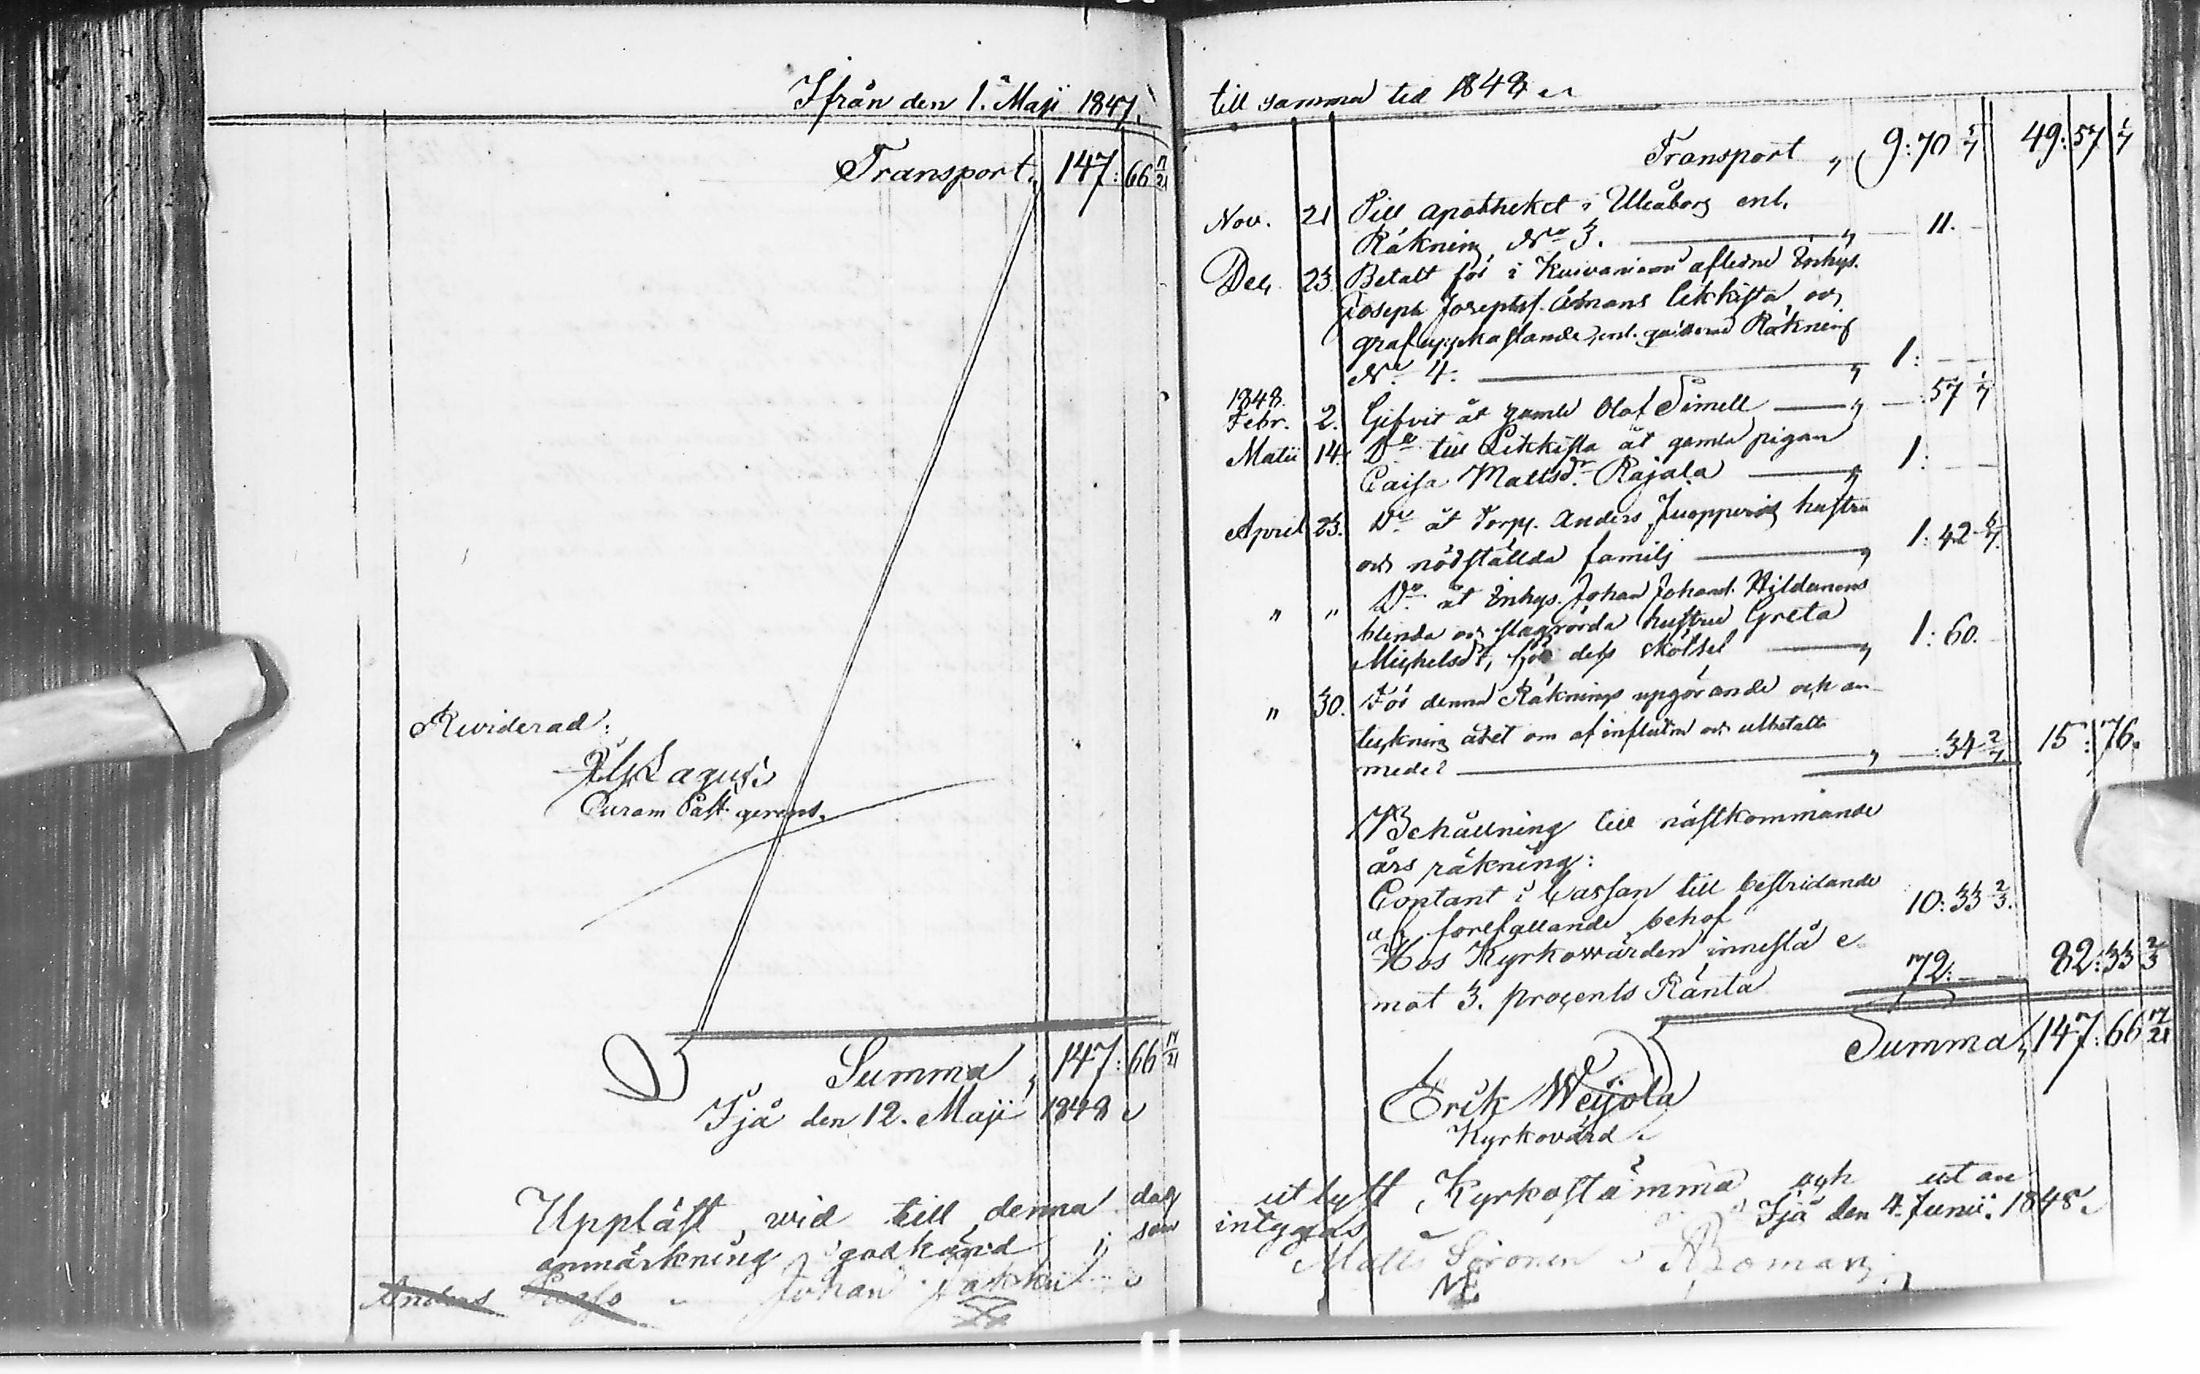 Ifrån den 1. Maji 1847.
Transport, 147: 66 17/21
Reviderad:
Lagus
Curam Past. gerens.
Summa, 147: 66 17/21
Ijå den 12. Maji 1848
Uppläst wid till denna dag
anmärkning godkänd, som
Anders Johan Jakku
till samma tid 1848
Transport, 9:70 5/7 49: 57 1/7
Nov. 21 Till Apotheket i Uleåborg enl.
Räkning No 3. — „ — 11. —
Dec. 23. Betalt för i Kuivaniemi aflidne Inhys.
Joseph Josephss. likkista, och
graf enl. qvitterad Räkning
No 4. — „ 1: —
1848.
Febr. 2. Gifvit åt gamle Olof Simell — „ —: 57 1/7
Matii 14. Do till Likkista åt gamla pigan
Caisa Mattsdr. Rajala — „ 1: —
April 23. Do åt Torp. Anders Juopperis hustru
och nödställda familj — „ 1: 42 6/7.
„ „ Do åt Inhys. Johan Johanss. Hildanens
blinda och slagrörda hustru Greta
Michelsdr, för dess skötsel — „ 1: 60.
„ 30. För denna Räknings upgörande och an-
tekning året om af influtne och utbetalte
medel — „ —: 34 2/7 15: 76.
Behållning till nästkommande
års räkning:
Contant i Cassan till bestridande
af förefallande behof 10: 33 2/3.
Hos Kyrkovärden innestå e
mot 3. procents Ränta 72: — 82: 33 2/3
Summa, 147: 66 17/21
Erik Weijola
Kyrkovärd.
utlyst Kyrkostämma och utan
intygas Ijå den 4. Junii. 1848.
Matts Sironen Boman